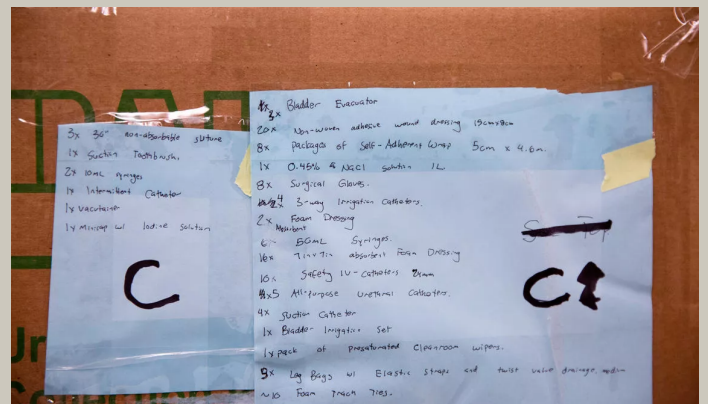 3x 30" non-absorbable suture
1x Suction Toothbrush
2x 10mL syringes
1x Intermittent Catheter
1x Vacutainer
1x Minicap w/ Iodine Solution
C
3x Bladder Evacuator
20x Non-woven adhesive wound dressing 15cmx8cm
8x Packages of Self-Adherent Wrap 5cm x 4.6m
1x 0.45% NaCl solution 1L
8x Surgical Gloves.
4 3-way Irrigation Catheters.
2x Foam Dressing
Absorbent
6- 50mL Syringes.
16x absorbent Foam Dressing
10x Safety IV-Catheters
x5 All-purpose Urethral Catheters.
4x Suction Catheter
1x Bladder Irrigation Set
1x pack of Presaturated Cleanroom wipers.
9x Leg Bags w/ Elastic Straps and twist valve drainage, medium
~10 Foam Trach Ties.
Top
C
Ur